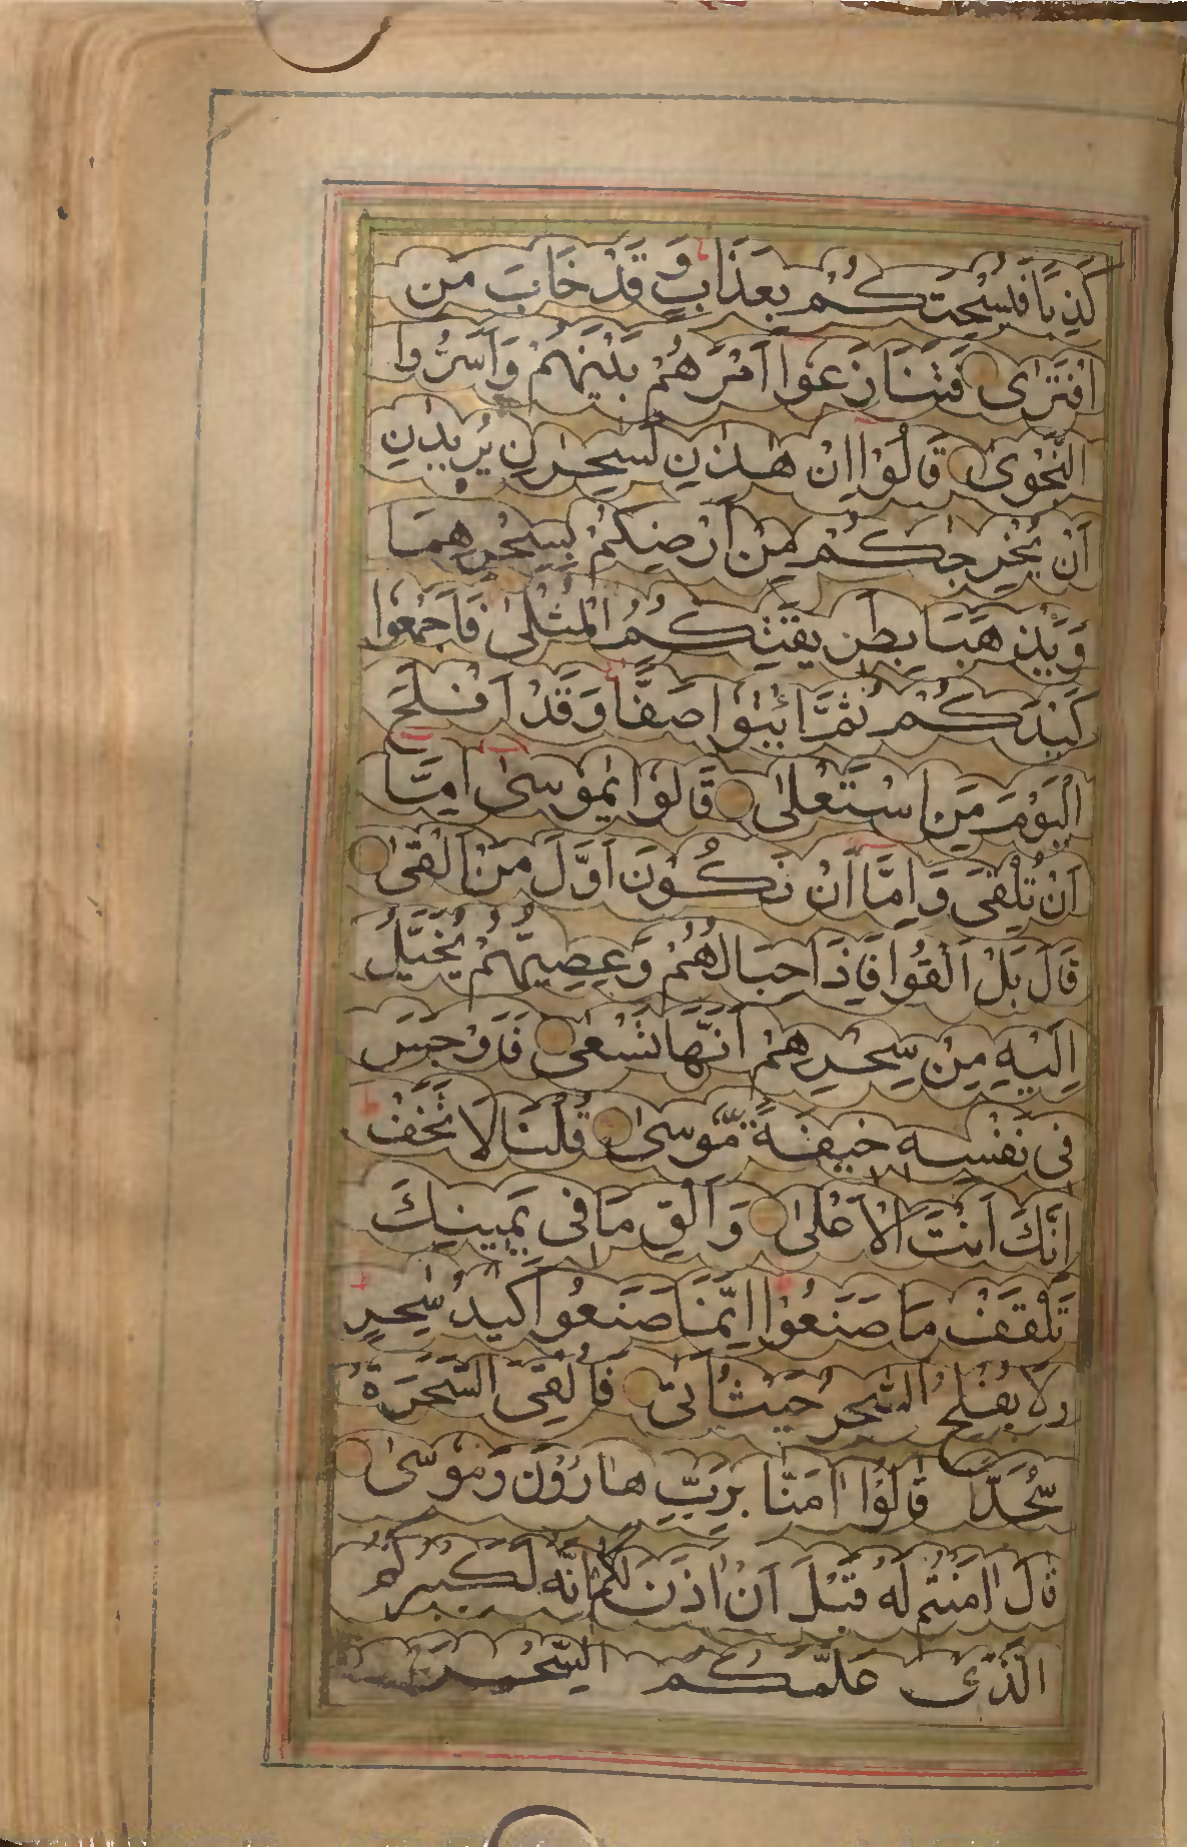 كَذِبًا فَيُسْحِتَكُمْ بِعَذَابٍ وَقَدْ خَابَ مَنِ
افْتَرٰى فَتَنَازَعُوْا اَمْرَهُمْ بَيْنَهُمْ وَاَسَرُّوا
النَّجْوٰى قَالُوْا اِنْ هٰذٰنِ لَسٰحِرٰنِ يُرِيْدٰنِ
اَنْ يُخْرِجٰكُمْ مِنْ اَرْضِكُمْ بِسِحْرِهِمَا
وَيَذْهَبَا بِطَرِيقَتِكُمُ الْمُثْلٰى فَاَجْمِعُوا
كَيْدَكُمْ ثُمَّ ائْتُوْا صَفًّا وَقَدْ اَفْلَحَ
الْيَوْمَ مَنِ اسْتَعْلٰى قَالُوْا يٰمُوْسٰى اِمَّا
اَنْ تُلْقِىَ وَاِمَّا اَنْ نَكُوْنَ اَوَّلَ مَنْ اَلْقٰى
قَالَ بَلْ اَلْقُوا فَاِذَا حِبَالُهُمْ وَعِصِيُّهُمْ يُخَيَّلُ
اِلَيْهِ مِنْ سِحْرِهِمْ اَنَّهَا تَسْعٰى فَاَوْجَسَ
فِى نَفْسِهٖ خِيفَةً مُّوْسٰى قُلْنَا لَا تَخَفْ
اِنَّكَ اَنْتَ الْاَعْلٰى وَاَلْقِ مَا فِى يَمِينِكَ
تَلْقَفْ مَا صَنَعُوْا اِنَّمَا صَنَعُوا كَيْدُ سٰحِرٍ
وَلَا يُفْلِحُ السّٰحِرُ حَيْثُ اَتٰى فَاُلْقِىَ السَّحَرَةُ
سُجَّدًا قَالُوْا اٰمَنَّا بِرَبِّ هَارُوْنَ وَمُوْسٰى
قَالَ اٰمَنْتُمْ لَهُ قَبْلَ اَنْ اٰذَنَ لَكُمْ اِنَّهُ لَكَبِيرُكُمُ
الَّذِى عَلَّمَكُمُ السِّحْرَ